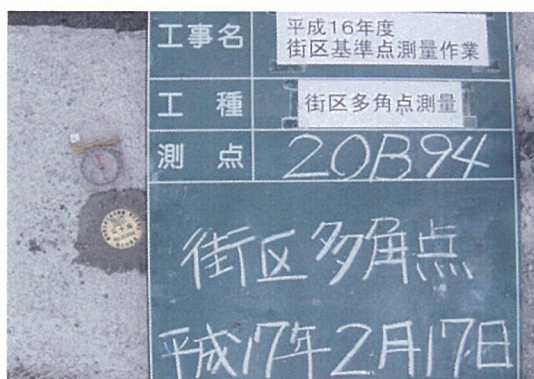 工事名
平成16年度
街区基準点測量作業
工 種
街区多角点測量
測 点
20B94
街区多角点
平成17年2月17日